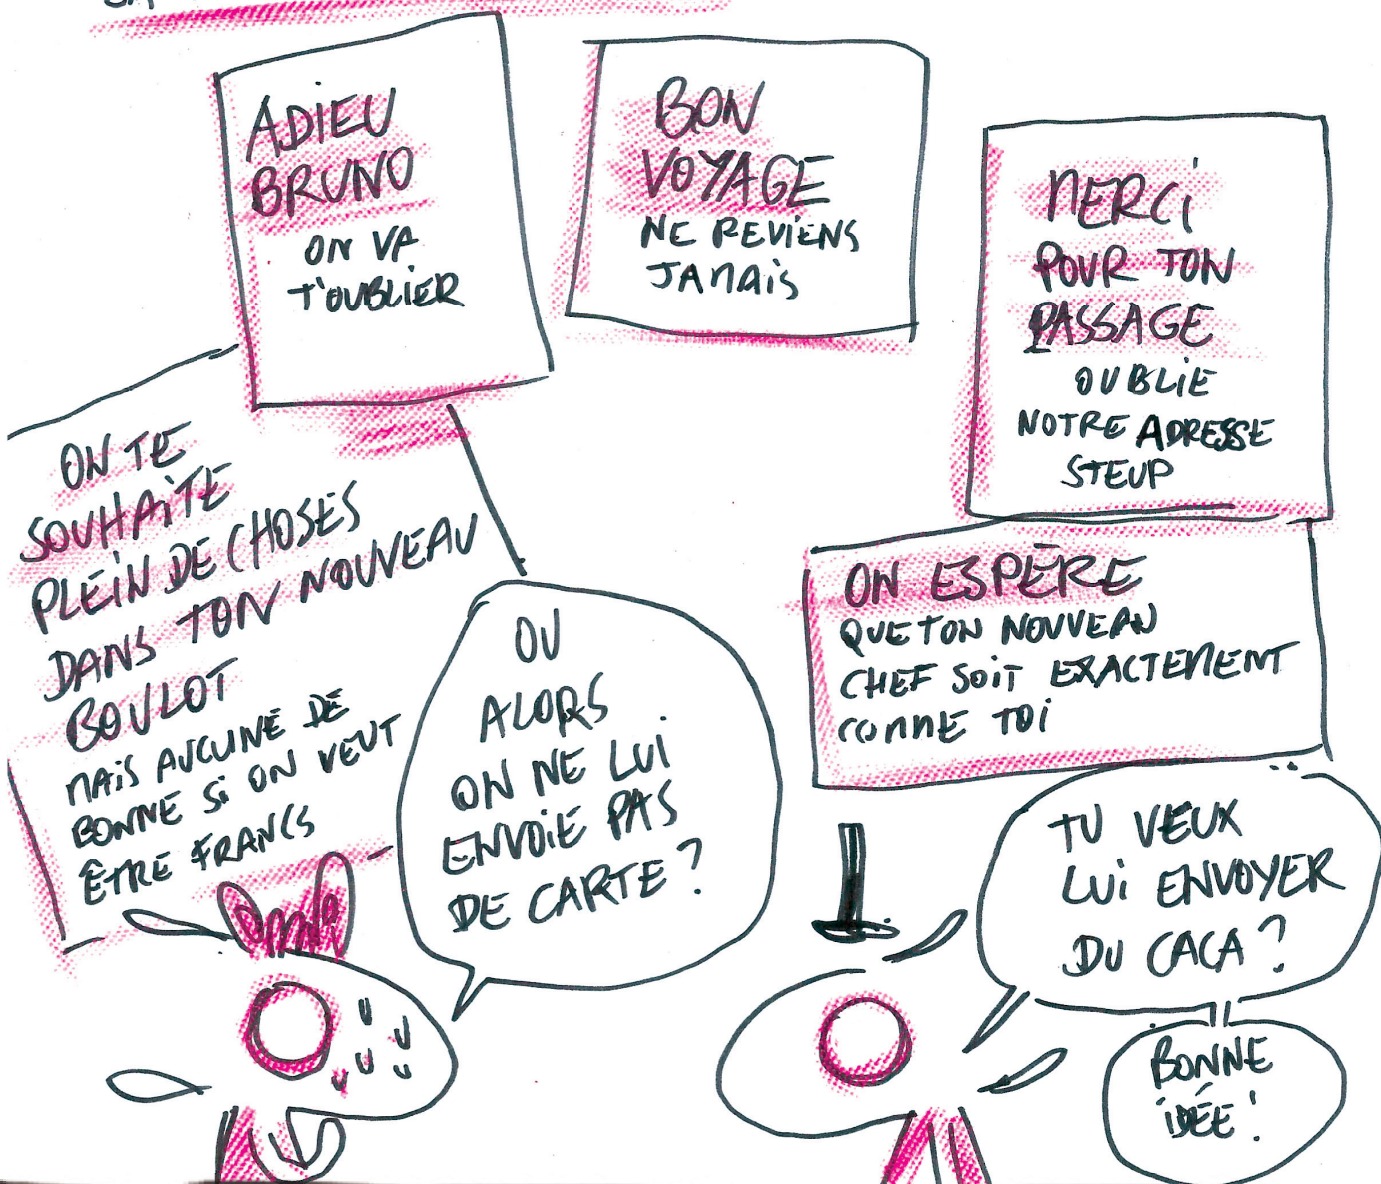 ADIEU
BRUNO
ON VA
T'OUBLIER
BON
VOYAGE
NE REVIENS
JAMAIS
MERCI
POUR TON
PASSAGE
OUBLIE
NOTRE ADRESSE
STEUP
ON TE
SOUHAITE
PLEIN DE CHOSES
DANS TON NOUVEAU
BOULOT
MAIS AUCUNE DE
BONNE SI ON VEUT
ÊTRE FRANCS
ON ESPÈRE
QUE TON NOUVEAU
CHEF SOIT EXACTEMENT
COMME TOI
OU
ALORS
ON NE LUI
ENVOIE PAS
DE CARTE ?
TU VEUX
LUI ENVOYER
DU CACA ?
BONNE
IDÉE !